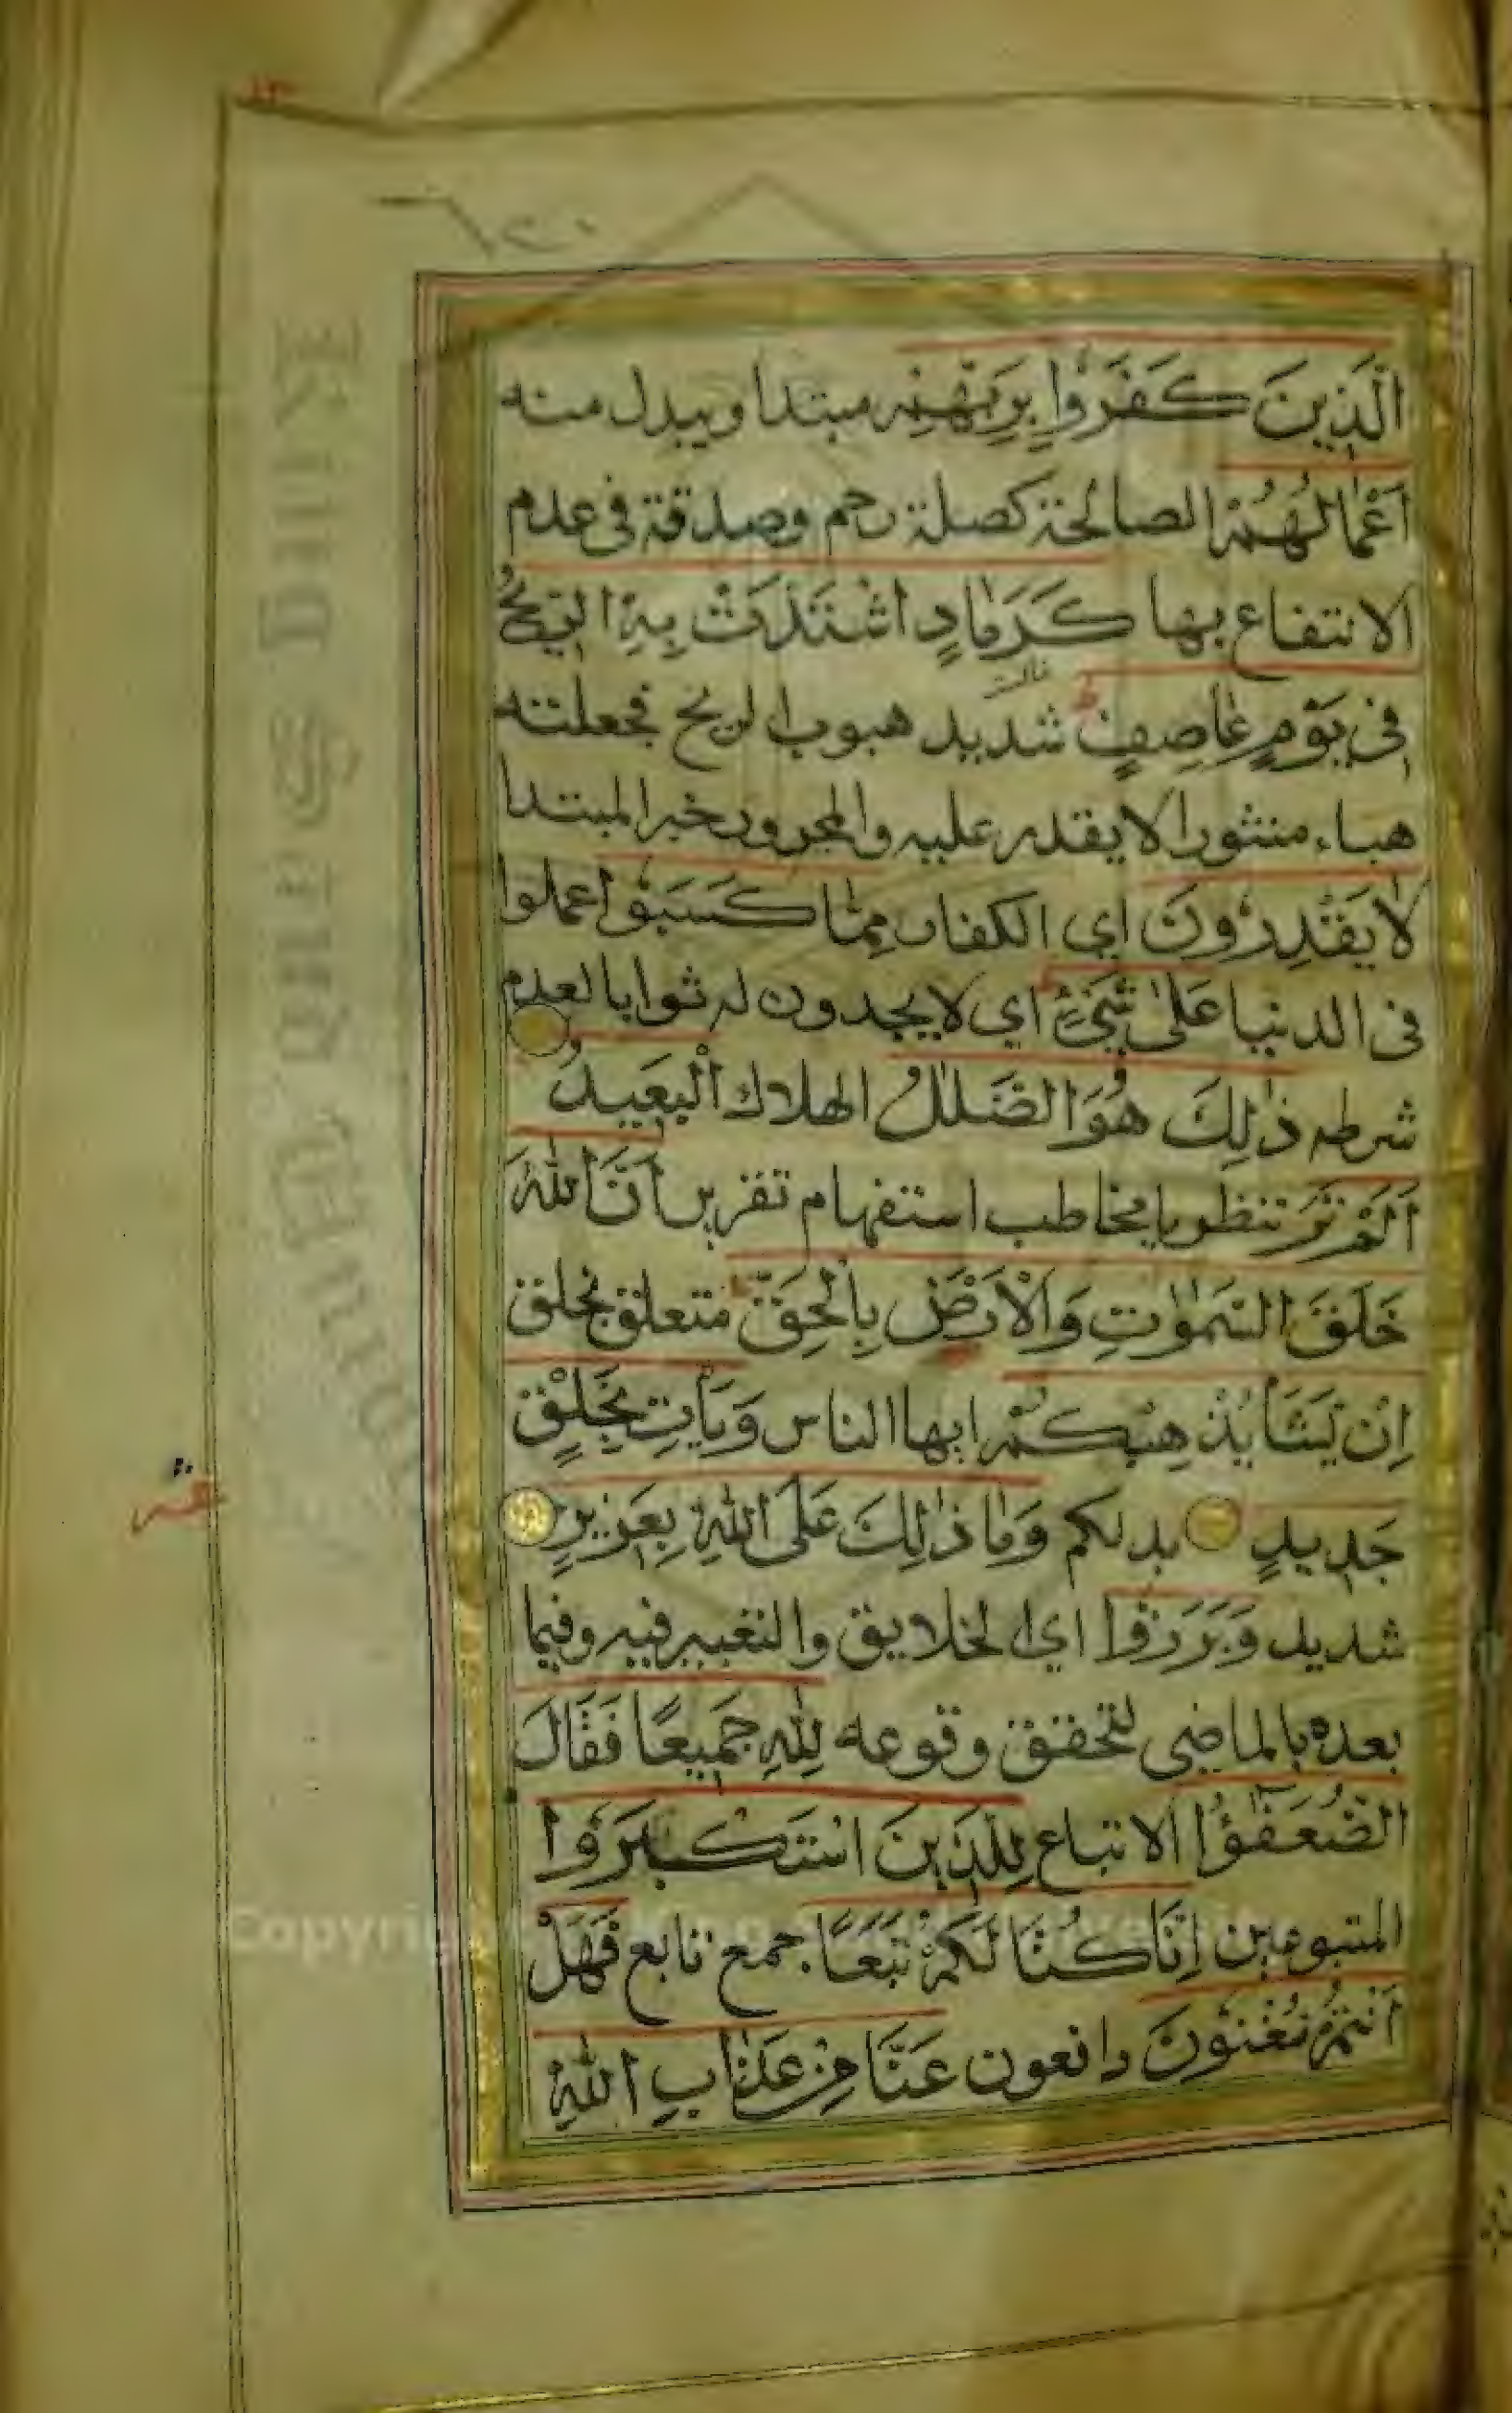 ٢٠
الَّذِينَ كَفَرُوا بِرَبِّهِمْ مبتدا ويبدل منه
اَعْمَالُهُمْ الصالحة كصلة رحم وصدقة في عدم
الانتفاع بها كَرَمَادٍ اشْتَدَّتْ بِهِ الرِّيحُ
فِي يَوْمٍ عَاصِفٍ شديد هبوب الريح فجعلته
هباء منثورا لا يقدر عليه والمجرور خبر المبتدا
لَا يَقْدِرُونَ اي الكفار مِمَّا كَسَبُوا عملوا
فى الدنيا عَلٰى شَيْءٍ اي لا يجدون له ثوابا لعدم
شرطه ذٰلِكَ هُوَ الضَّلٰلُ الهلاك الْبَعِيدُ
اَلَمْ تَرَ تنظر يا مخاطب استفهام تقرير اَنَّ اللّٰهَ
خَلَقَ السَّمٰوٰتِ وَالْاَرْضَ بِالْحَقِّ متعلق بخلق
اِنْ يَشَأْ يُذْهِبْكُمْ ايها الناس وَيَأْتِ بِخَلْقٍ
جَدِيدٍ بدلكم وَمَا ذٰلِكَ عَلَى اللّٰهِ بِعَزِيزٍ
شديد وَبَرَزُوا اي الخلايق والتعبير فيه وفيما
بعده بالماضي لتحقق وقوعه لِلّٰهِ جَمِيعًا فَقَالَ
الضُّعَفٰؤُا الاتباع لِلَّذِينَ اسْتَكْبَرُوا
المتبوعين اِنَّا كُنَّا لَكُمْ تَبَعًا جمع تابع فَهَلْ
اَنْتُمْ مُغْنُونَ دافعون عَنَّا مِنْ عَذَابِ اللّٰهِ